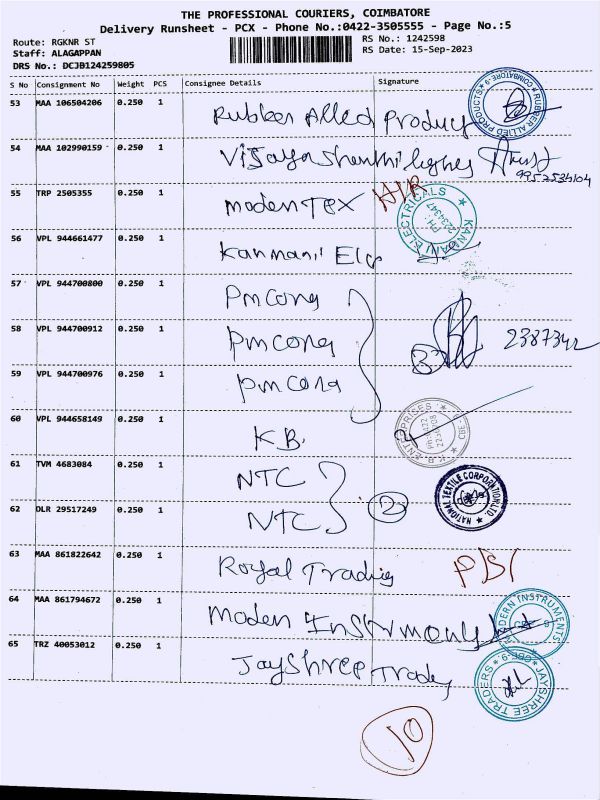 THE PROFESSIONAL COURIERS, COIMBATORE
Delivery Runsheet - PCX - Phone No.:0422-3505555 - Page No.:5
Route: RGKNR ST
RS No.: 1242598
Staff: ALAGAPPAN
RS Date: 15-Sep-2023
DRS No.: DCJB124259805
S No Consignment No Weight PCS Consignee Details Signature
53 MAA 106504206 0.250 1 Rubber Allied Product
RUBBER ALLIED PRODUCTS COIMBATORE-9
54 MAA 102990159 0.250 1 Vijaya
9952534104
55 TRP 2505355 0.250 1 Moden Tex
KANMANI ELECTRICALS PH: 2234347
56 VPL 944661477 0.250 1 Kanmani Ele
57 VPL 944700800 0.250 1 Pmcong
58 VPL 944700912 0.250 1 Pmcong 3 2387342
59 VPL 944700976 0.250 1 Pmcong
60 VPL 944658149 0.250 1 K.B.
K.B. ENTERPRISES
61 TVM 4683084 0.250 1 NTC
NATIONAL TEXTILE CORPORATION LTD.
62 DLR 29517249 0.250 1 NTC 2
63 MAA 861822642 0.250 1 Royal Trading
64 MAA 861794672 0.250 1 Moden Instrments
MODERN INSTRUMENTS
65 TRZ 40053012 0.250 1 Jayshree Trade
JAYSHREE TRADERS CBE-9
10